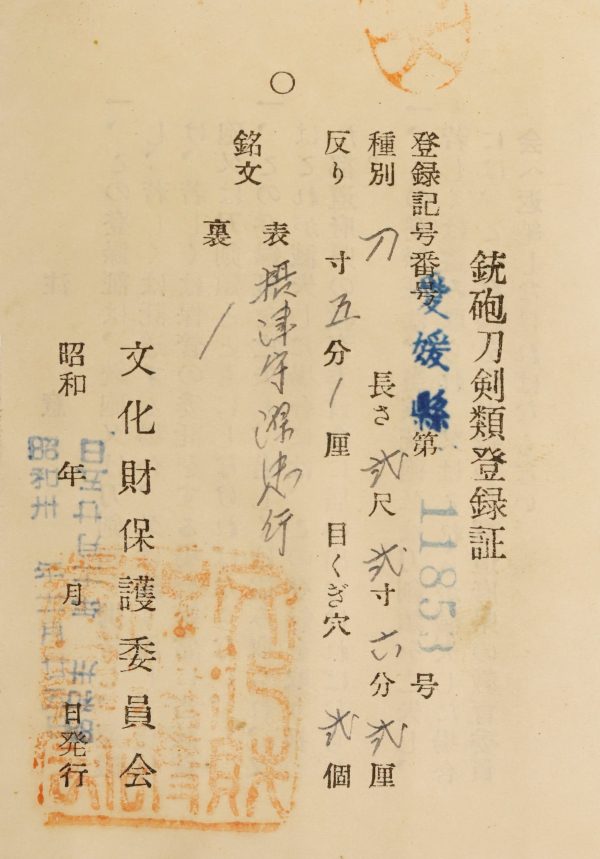 銃砲刀剣類登録証
登録記号番号 愛媛縣 第 11853 号
種別 刀 長さ 弐尺 弐寸 六分 弐厘
反り 寸 五分 厘 目くぎ穴 弐個
銘文 表 摂津守源忠行
裏
文化財保護委員会
昭和 年 月 日発行